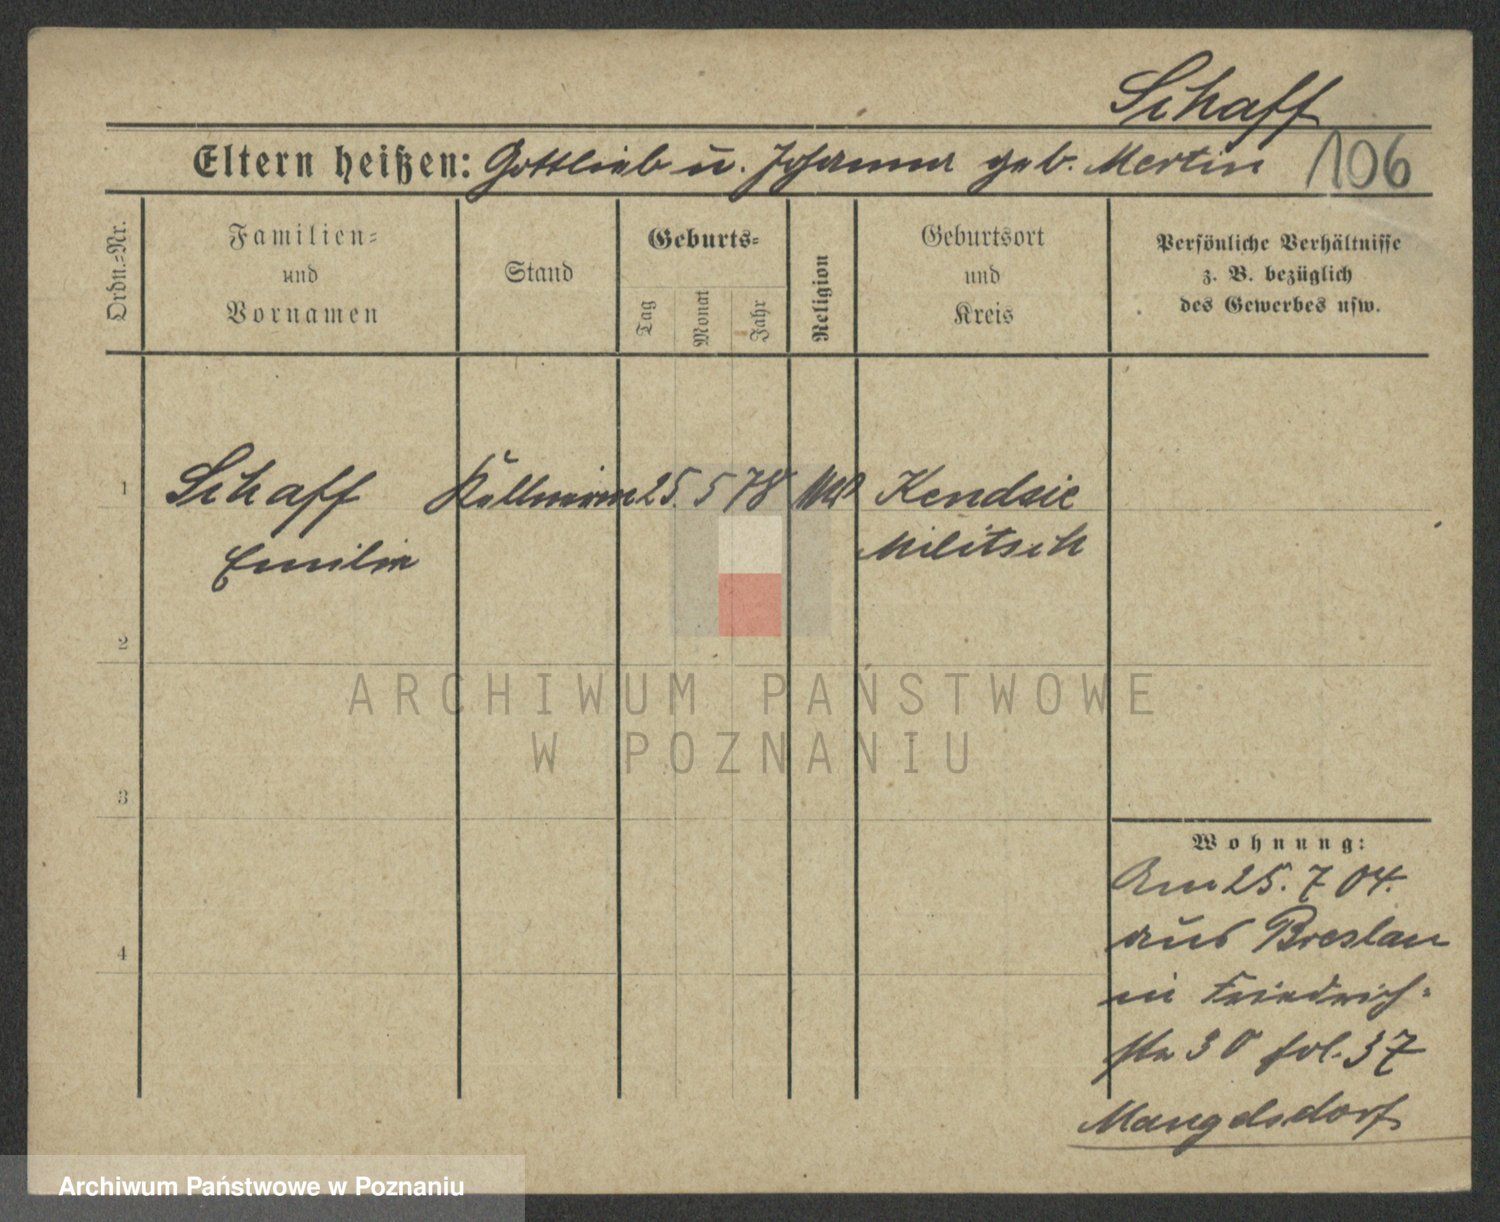 Schaff
Eltern heißen: Gottlieb u. Johanna geb. Mertin 106
Ordn.-Nr.
Familien-
und
Vornamen
Stand
Geburts-
Tag
Monat
Jahr
Religion
Geburtsort
und
Kreis
Persönliche Verhältnisse
z. B. bezüglich
des Gewerbes usw.
1 Schaff Kellnerin 25. 5 78 Kendzie
Emilie Militsch
2
3
4
Wohnung:
Am 25. 7 04.
aus Breslau
in Friedrich-
str 30 fol. 37
Mangelsdorf
ARCHIWUM PAŃSTWOWE
W POZNANIU
Archiwum Państwowe w Poznaniu